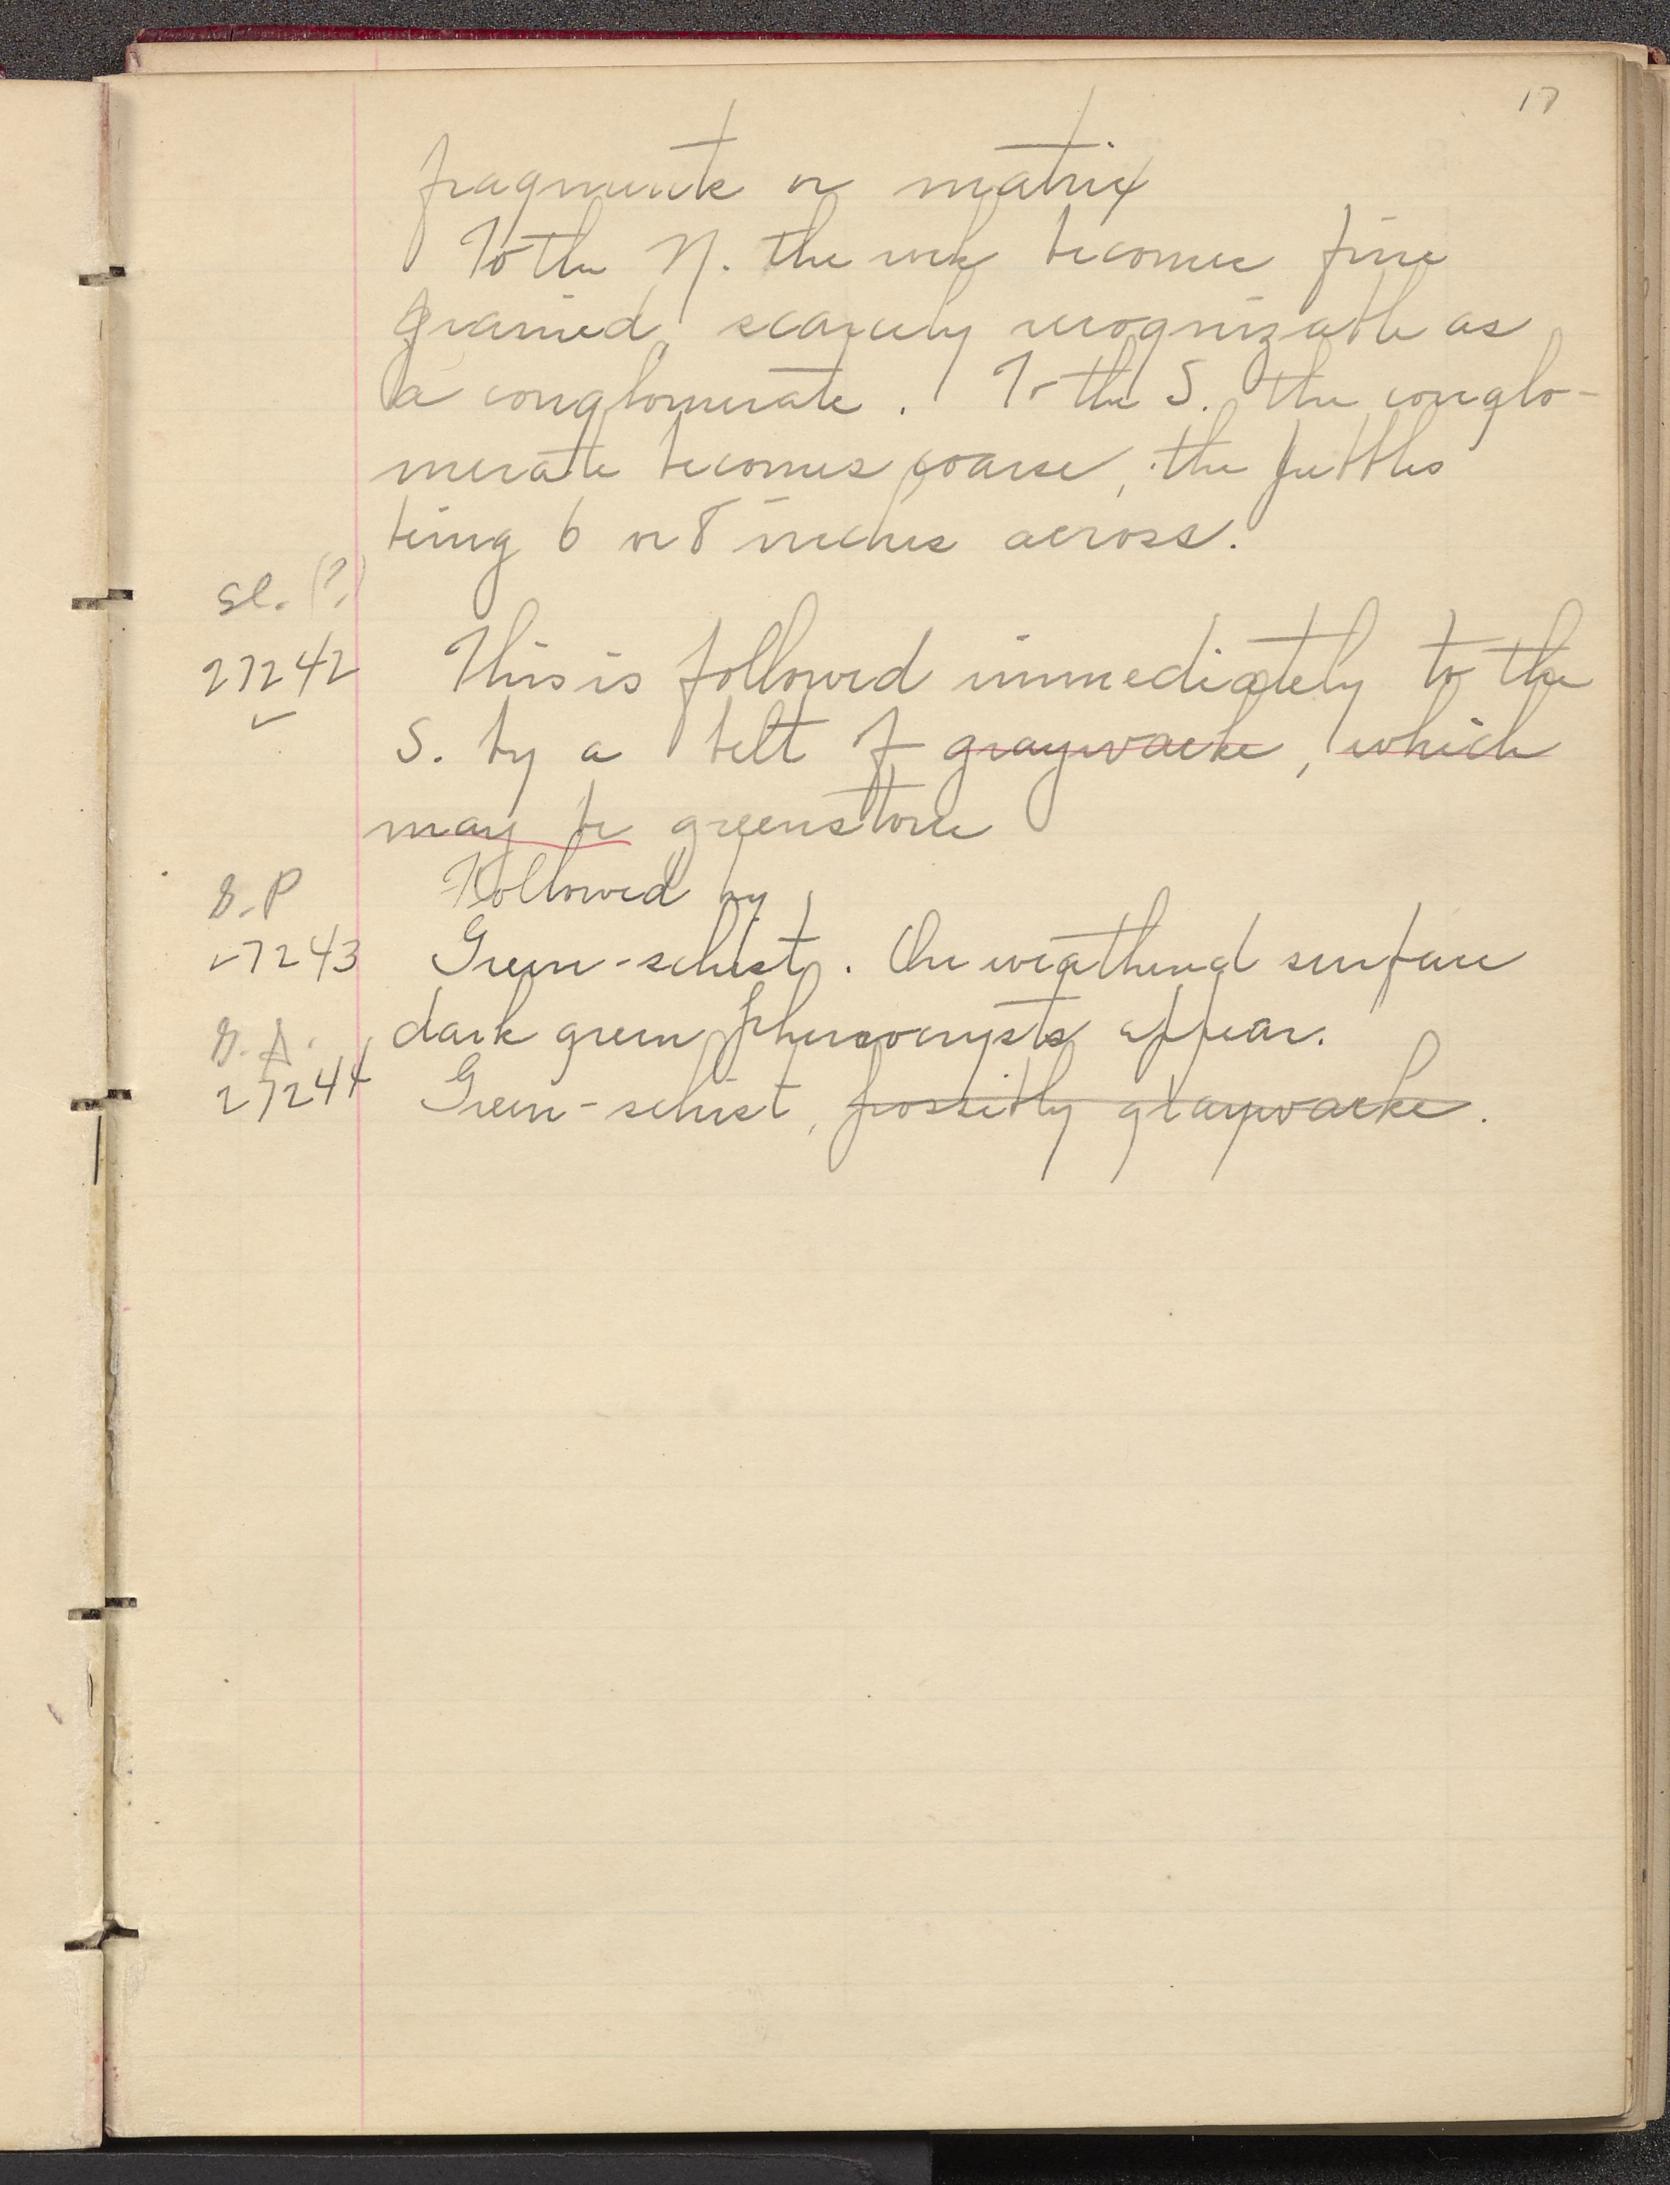 17
fragments or matrix
To the N. the rock becomes fine
grained, scarcely recognizable as
a conglomerate. To the S. the conglo-
merate becomes coarse, the pebbles
being 6 or 8 inches across.
Sl. (?)
27242 This is followed immediately to the
S. by a belt of graywacke, which
may be greenstone
Followed by
27243 Green-schist. On weathered surface
dark green phenocrysts appear.
27244 Green-schist, possibly graywacke.